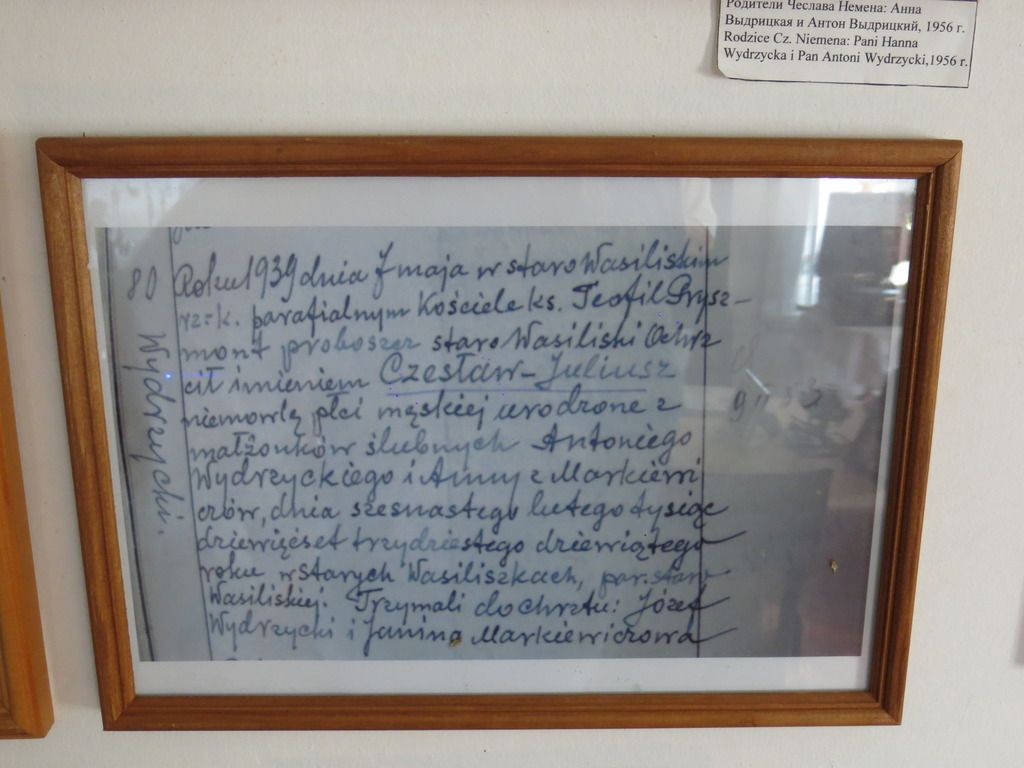 Родители Чеслава Немена: Анна
Выдрицкая и Антон Выдрицкий, 1956 г.
Rodzice Cz. Niemena: Pani Hanna
Wydrzycka i Pan Antoni Wydrzycki,1956 r.
80
Wydrzycki.
Roku 1939 dnia 7 maja w staro Wasiliskim
rz=k. parafialnym Kościele ks. Teofil Prysz-
mont proboszcz staro Wasiliski Ochrz
cił imieniem Czesław-Juliusz
niemowlę płci męskiej urodzone z
małżonków ślubnych Antoniego
Wydrzyckiego i Anny z Markiewi
czów, dnia szesnastego lutego tysiąc
dziewięćset trzydziestego dziewiątego
roku w Starych Wasiliszkach, par. staro
Wasiliskiej. Trzymali do chrztu: Józef
Wydrzycki i Janina Markiewiczowa